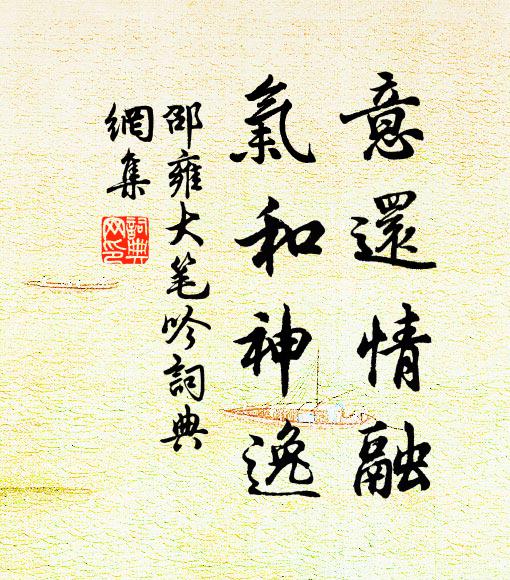 意還情融
氣和神逸
邵雍大笔吟詞典
網集
詞典
网印